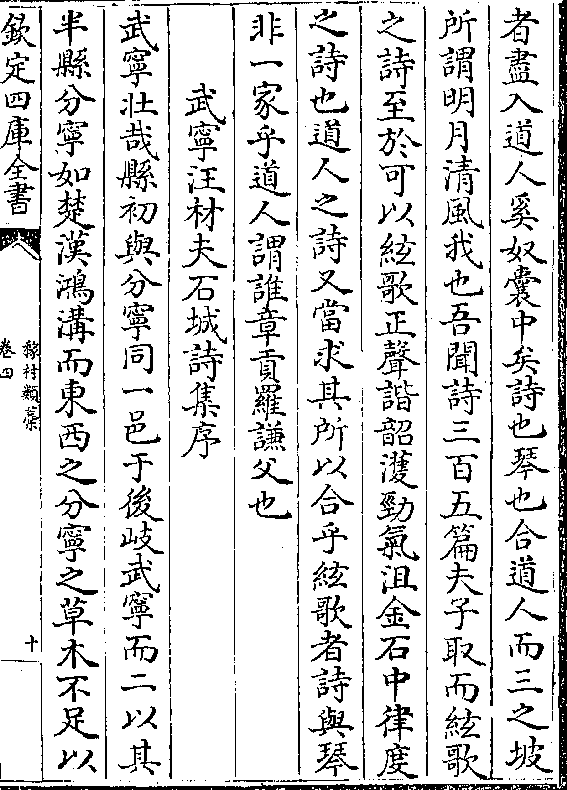 者盡入道人奚奴囊中矣詩也琴也合道人而三之坡
所謂明月清風我也吾聞詩三百五篇夫子取而絃歌
之詩至於可以絃歌正聲諧韶濩勁氣沮金石中律度
之詩也道人之詩又當求其所以合乎絃歌者詩與琴
非一家乎道人謂誰章貢羅謙父也
武寧汪材夫石城詩集序
武寧壯哉縣初與分寧同一邑于後岐武寧而二以其
半縣分寧如楚漢鴻溝而東西之分寧之草木不足以
欽定四庫全書
稼村類藁
卷四
十